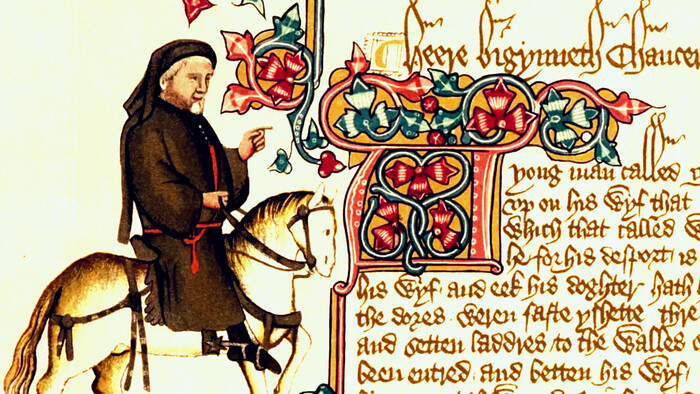 Heere bigynneth Chaucer
A yong man called
vp on his wyf that
Which that called
he for his desport is
his wyf and eek his doghter hath
the dores weren faste yshette thre
and setten laddres to the walles
been entred and betten his wyf